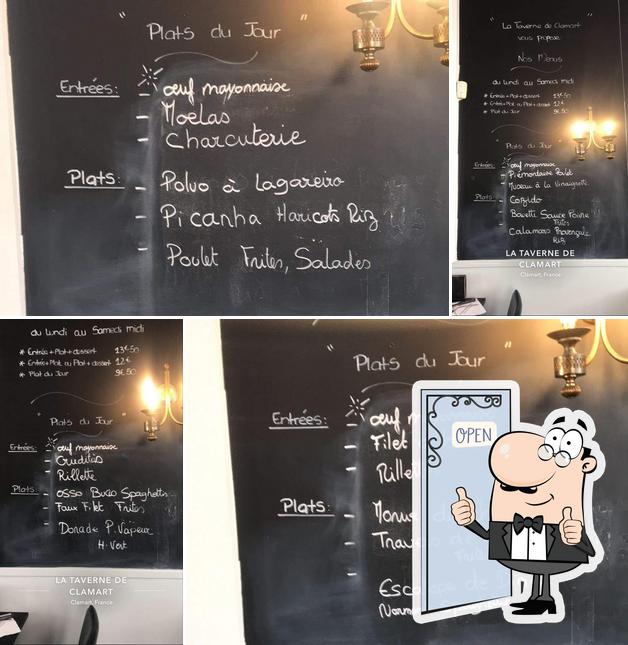 " Plats du Jour "
Entrées: - œuf mayonnaise
- Moelas
- Charcuterie
Plats: - Polvo à Lagareiro
- Picanha Haricots Riz
- Poulet Frites, Salades
" La Taverne de Clamart "
vous propose
Nos Menus
du lundi au Samedi midi
* Entrée+Plat+dessert 13€50
* Entrée+Plat ou Plat+dessert 12€
* Plat du Jour 9€50
Plats du Jour
Entrées: - œuf mayonnaise
- Piémontaise Poulet
- Museau à la Vinaigrette
Plats: - Cozido
- Bavette Sauce Poivre
Frites
- Calamars Provençale
Riz
LA TAVERNE DE
CLAMART
Clamart, France
du lundi au Samedi midi
* Entrée+Plat+dessert 13€50
* Entrée+Plat ou Plat+dessert 12€
* Plat du Jour 9€50
" Plats du Jour "
Entrées: - œuf mayonnaise
- Crudités
- Rillette
Plats: - osso Buco Spaghettis
- Faux Filet Frites
- Dorade P. Vapeur
H. Vert
LA TAVERNE DE
CLAMART
Clamart, France
" Plats du Jour "
Entrées: - œuf
- Filet
- Rille
Plats: - Morue
- Trav
- Esc
Norm
OPEN